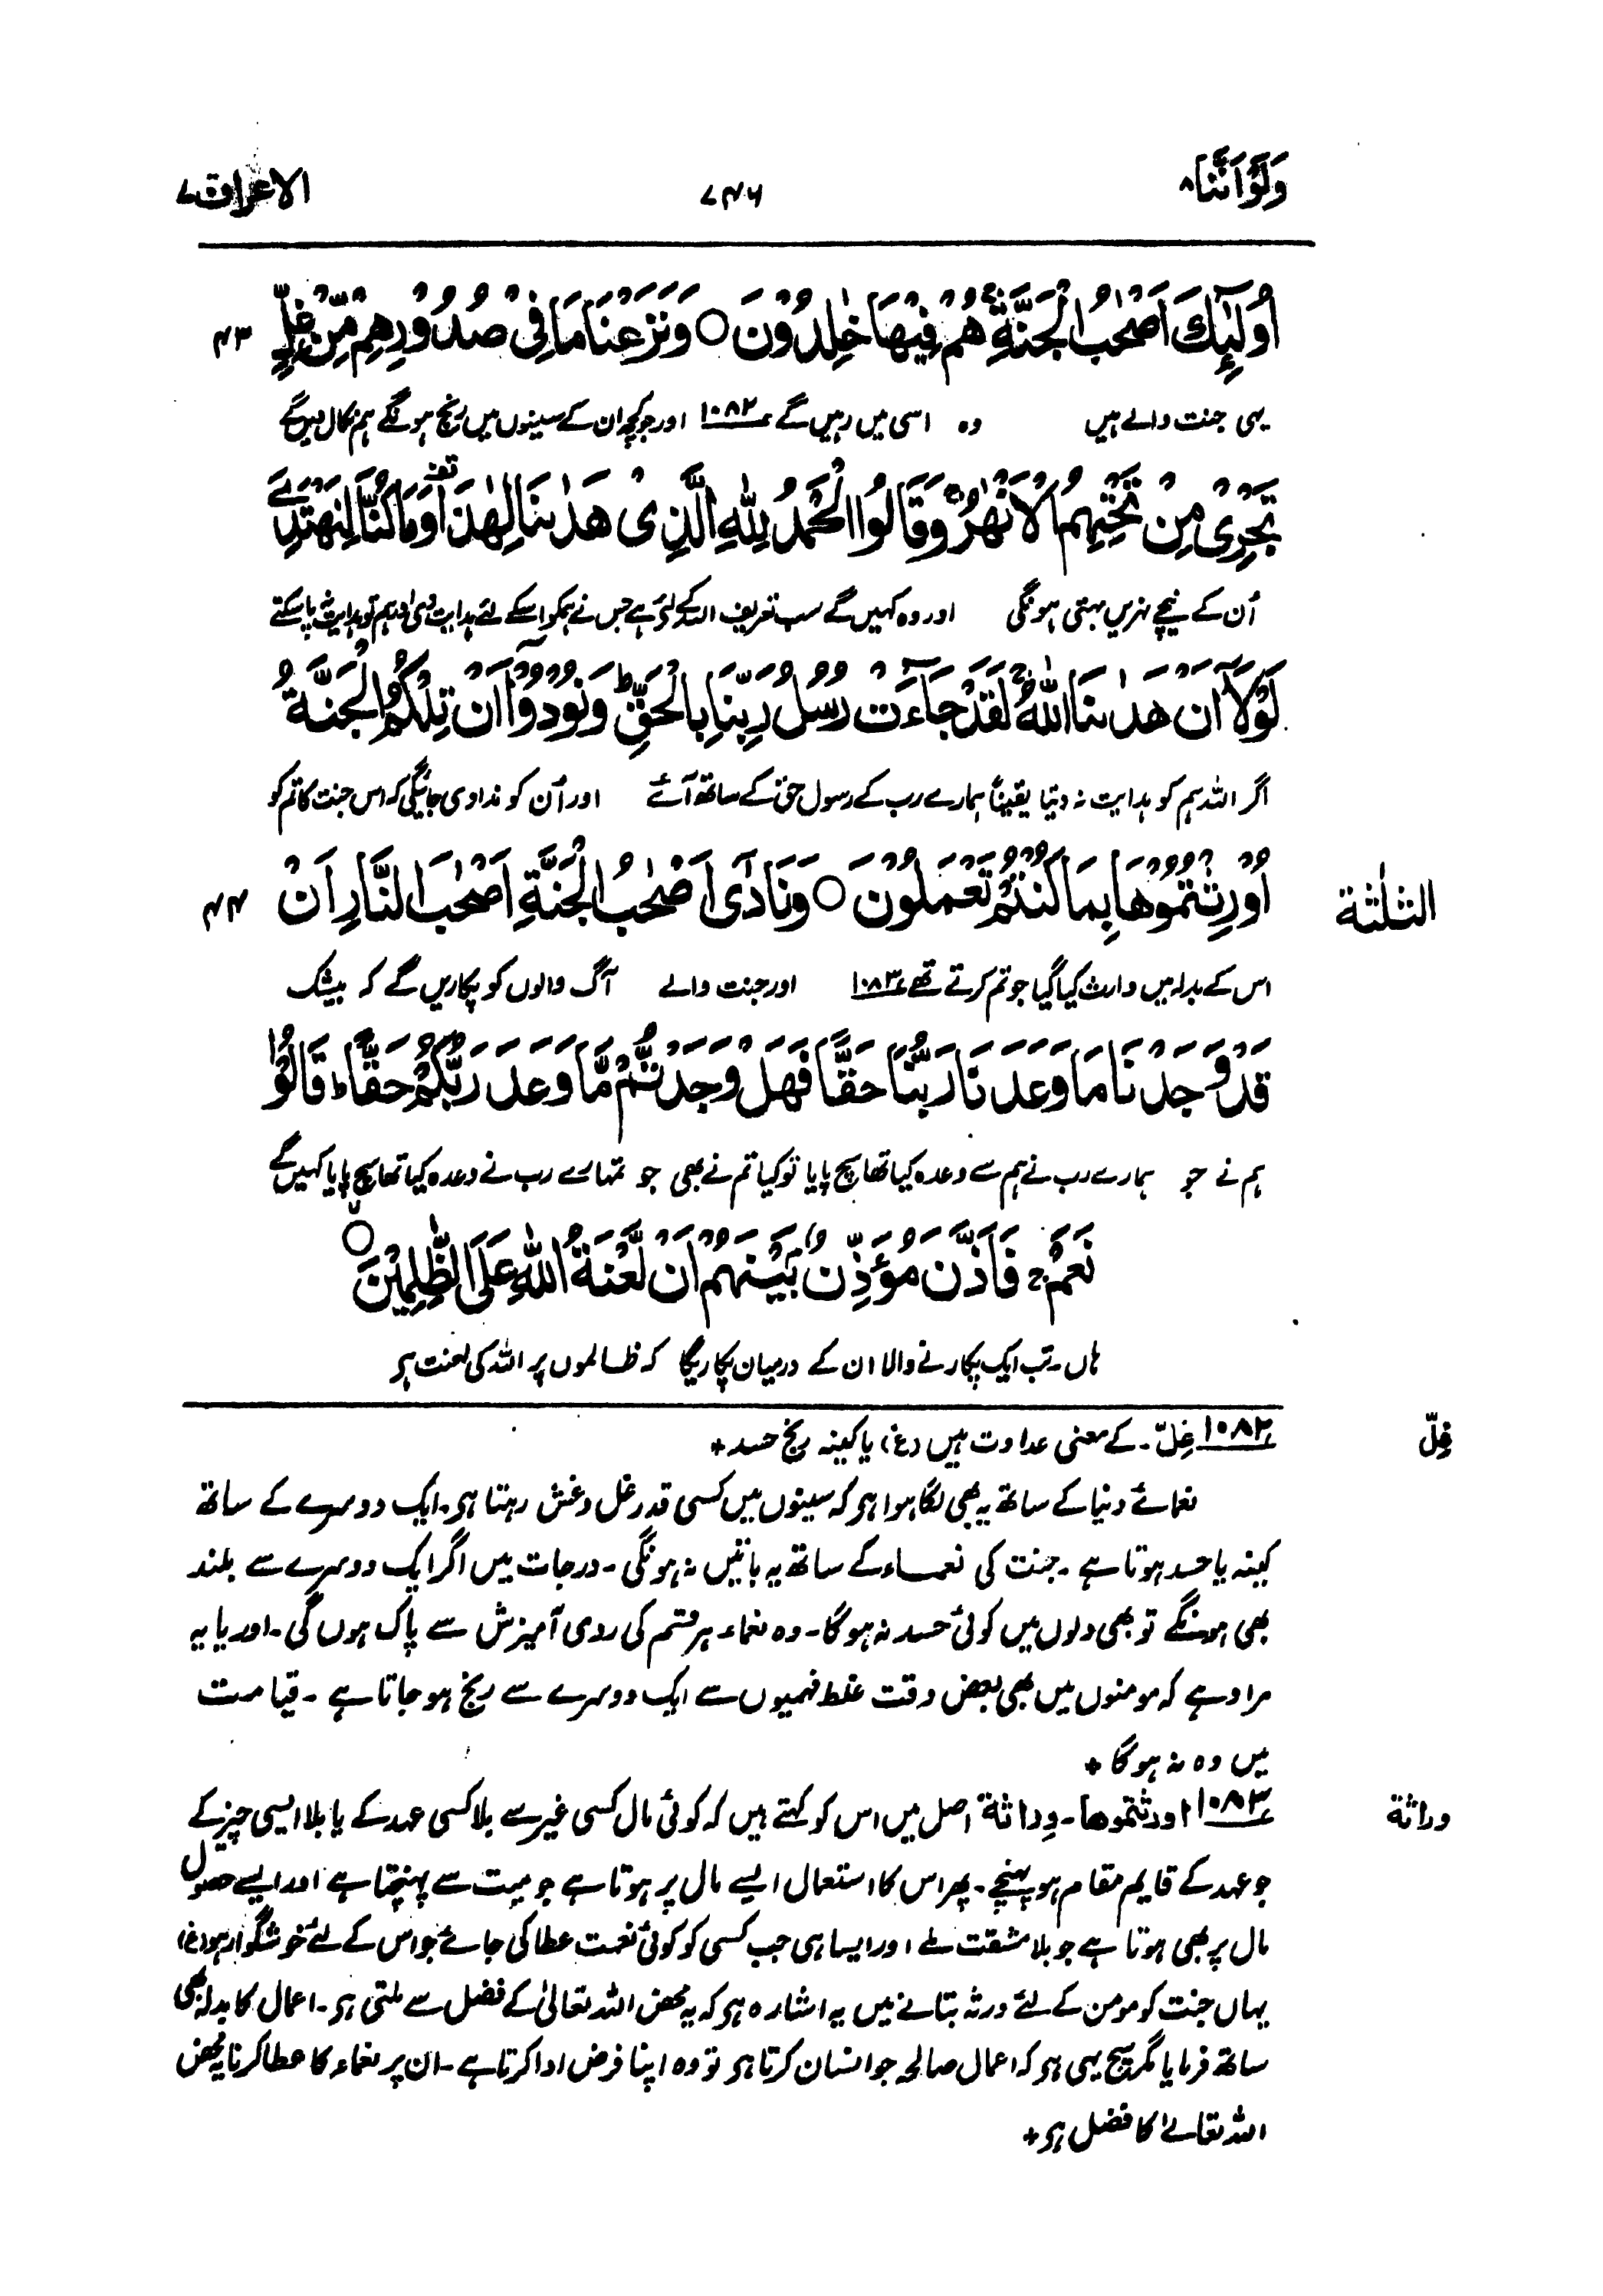 وَلَوْاَنَّنَا ۸
۷۴۶
الاعراف ۷
اُولٰٓئِكَ اَصْحٰبُ الْجَنَّةِ ۚ هُمْ فِيْهَا خٰلِدُوْنَ ○ وَنَزَعْنَا مَا فِيْ صُدُوْرِهِمْ مِّنْ غِلٍّ
۴۳
یہی جنت والے ہیں وہ اسی میں رہیں گے ۱۰۸۲ اور جو کچھ ان کے سینوں میں رنج ہونگے ہم نکال دیں گے
تَجْرِيْ مِنْ تَحْتِهِمُ الْاَنْهٰرُ ۚ وَقَالُوا الْحَمْدُ لِلّٰهِ الَّذِيْ هَدٰىنَا لِهٰذَا وَمَا كُنَّا لِنَهْتَدِيَ
اُن کے نیچے نہریں بہتی ہونگی اور وہ کہیں گے سب تعریف اللہ کے لئے ہے جس نے ہمکو اسکے لئے ہدایت دی اور ہم تو ہدایت نہ پا سکتے
لَوْلَآ اَنْ هَدٰىنَا اللّٰهُ ۚ لَقَدْ جَآءَتْ رُسُلُ رَبِّنَا بِالْحَقِّ ؕ وَنُوْدُوْۤا اَنْ تِلْكُمُ الْجَنَّةُ
اگر اللہ ہم کو ہدایت نہ دیتا یقیناً ہمارے رب کے رسول حق کے ساتھ آئے اور اُن کو ندا دی جائیگی کہ اس جنت کا تم کو
اُوْرِثْتُمُوْهَا بِمَا كُنْتُمْ تَعْمَلُوْنَ ○ وَنَادٰۤى اَصْحٰبُ الْجَنَّةِ اَصْحٰبَ النَّارِ اَنْ
۴۴
الثلٰثة
اس کے بدلہ میں وارث کیا گیا جو تم کرتے تھے ۱۰۸۳ اور جنت والے آگ والوں کو پکاریں گے کہ بیشک
قَدْ وَجَدْنَا مَا وَعَدَنَا رَبُّنَا حَقًّا فَهَلْ وَجَدْتُّمْ مَّا وَعَدَ رَبُّكُمْ حَقًّا ؕ قَالُوْا
ہم نے جو ہمارے رب نے ہم سے وعدہ کیا تھا سچ پایا تو کیا تم نے بھی جو تمہارے رب نے وعدہ کیا تھا سچ پایا کہیں گے
نَعَمْ ۚ فَاَذَّنَ مُؤَذِّنٌۢ بَيْنَهُمْ اَنْ لَّعْنَةُ اللّٰهِ عَلَى الظّٰلِمِيْنَ ○
ہاں۔ تب ایک پکارنے والا ان کے درمیان پکاریگا کہ ظالموں پر اللہ کی لعنت ہو
غِلّ
۱۰۸۲ غِلّ۔ کے معنی عداوت ہیں (غ) یا کینہ رنج حسد +
نعمائے دنیا کے ساتھ یہ بھی لگا ہوا ہو کہ سینوں میں کسی قدر غل و غش رہتا ہو۔ ایک دوسرے کے ساتھ
کینہ یا حسد ہوتا ہے۔ جنت کی نعماء کے ساتھ یہ باتیں نہ ہونگی۔ درجات میں اگر ایک دوسرے سے بلند
بھی ہونگے تو بھی دلوں میں کوئی حسد نہ ہوگا۔ وہ نعماء ہر قسم کی ردی آمیزش سے پاک ہوں گی۔ اور یا یہ
مراد ہے کہ مومنوں میں بھی بعض وقت غلط فہمیوں سے ایک دوسرے سے رنج ہو جاتا ہے۔ قیامت
میں وہ نہ ہوگا +
وراثة
۱۰۸۳ اورثتموھا۔ وِراثة اصل میں اس کو کہتے ہیں کہ کوئی مال کسی غیر سے بلا کسی عہد کے یا بلا ایسی چیز کے
جو عہد کے قایم مقام ہو پہنچے۔ پھر اس کا استعمال ایسے مال پر ہوتا ہے جو میت سے پہنچتا ہے اور ایسے حصول
مال پر بھی ہوتا ہے جو بلا مشقت ملے اور ایسا ہی جب کسی کو کوئی نعمت عطا کی جائے جو اس کے لئے خوشگوار ہو (غ)
یہاں جنت کو مومن کے لئے ورثہ بتانے میں یہ اشارہ ہو کہ یہ محض اللہ تعالیٰ کے فضل سے ملتی ہو۔ اعمال کا بدلہ بھی
ساتھ فرمایا مگر سچ یہی ہو کہ اعمال صالحہ جو انسان کرتا ہو تو وہ اپنا فرض ادا کرتا ہے۔ ان پر نعماء کا عطا کرنا یہ محض
اللہ تعالےٰ کا فضل ہو +